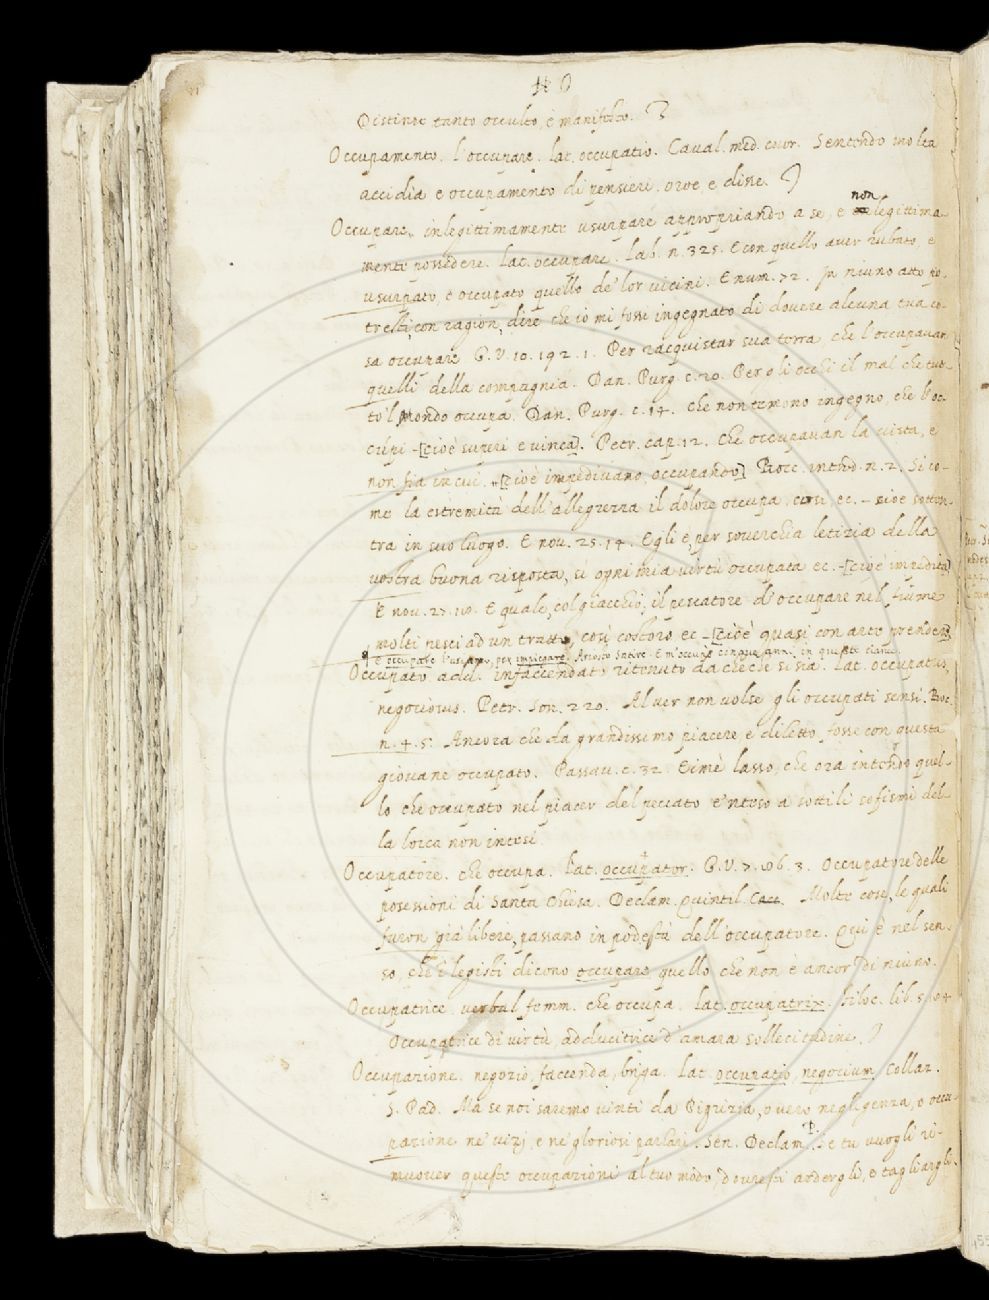 # O
Distinte tanto occulto, e manifesto.
Occupamento. l'occupare. lat. occupatio. Caval. med. cuor. Sentendo molta
accidia e occupamento di pensieri. oroe, e disse.
Occupare. inlegittimamente usurpare appropriando a se, e non legittima-
mente possedere. Lat. occupare. Lab. n. 325. E con quello aver rubato, e
usurpato, e occupato quello de' lor vicini. E num. 72. In niuno atto po-
tresti, con ragion, dire che io mi fossi ingegnato di dovere alcuna tua co-
sa occupare G. V. 10. 192. 1. Per racquistar sua terra che l'occupavan
quelli della compagnia. Dan. Purg. c. 20. Per gli occhi il mal che tut-
to 'l Mondo occupa. Dan. Purg. c. 14. che non temono ingegno, che l'oc-
cupi -[cioè superi e vinca]. Petr. cap. 12. Che occupavan la vista, e
non fia in cui. -[cioè impedivano occupando] Bocc. introd. n. 2. Si co-
me la estremità dell'allegrezza il dolore occupa. così, ec. - cioè sotten-
tra in suo luogo. E nov. 25. 14. Egli è, per soverchia letizia della
vostra buona risposta, si ogni mia virtù occupata ec. -[cioè impedita]
E nov. 27. 20. E quale, col giacchio, il pescatore d'occupare nel fiume
molti pesci ad un tratto, così costoro ec -[cioè quasi con arte prender]
E occupare l'usiamo, per impiegare. Ariosto Satire. E m'occupò cinque anni in queste ciance.
Occupato. add. infaccendato ritenuto da che che si sia. Lat. occupatus,
negociosus. Petr. Son. 220. Al ver non volse gli occupati sensi. Boc.
n. 4. 5. Ancora che da grandissimo piacere e diletto fosse con questa
giovane occupato. Passav. c. 32. Oimè lasso, che ora intendo quel-
lo che occupato nel piacer del peccato e 'nteso a sottili sofismi del-
la loica non intesi.
Occupatore. che occupa. Lat. occupator. G. V. 7. 106. 3. Occupatore delle
posessioni di Santa Chiesa. Declam. Quintil. Molte cose, le quali
furon già libere, passano in podestà dell'occupatore. Qui è nel sen-
so, che i legisti dicono occupare quello che non è ancor di niuno.
Occupatrice verbal femm. che occupa. Lat. occupatrix. Filoc. lib. 5.
Occupatrice di virtù, adducitrice d'amara sollecitudine.
Occupazione. negozio, faccenda, briga. Lat. occupatio, negocium Collaz.
S. Pad. Ma se noi saremo vinti da Pigrizia, o vero negligenza, o occu-
pazione ne' vizj, e ne' gloriosi parlari. Sen. Declam. P. Se tu vuogli ri-
muover queste occupazioni al tuo modo, dovresti ardergli, e tagliargli.